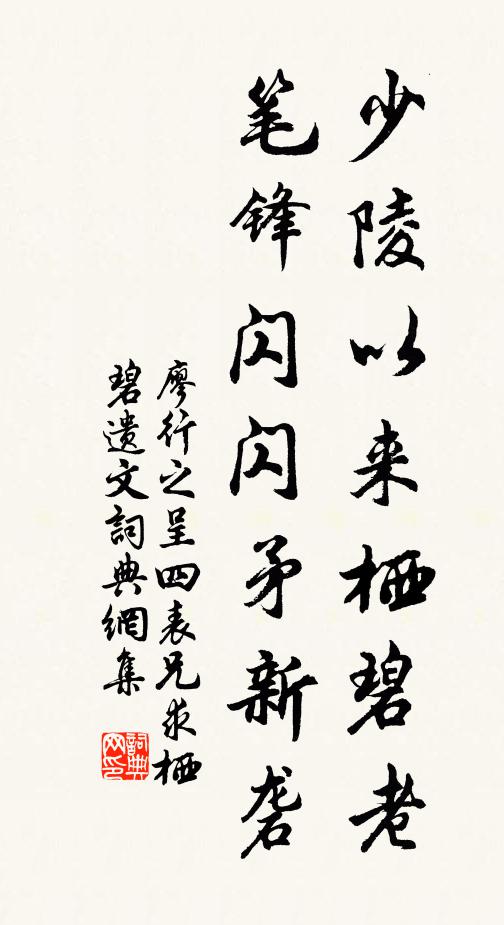 少陵以来栖碧老
笔锋闪闪矛新砻
廖行之呈四表兄求栖
碧遗文詞典網集
詞典网印